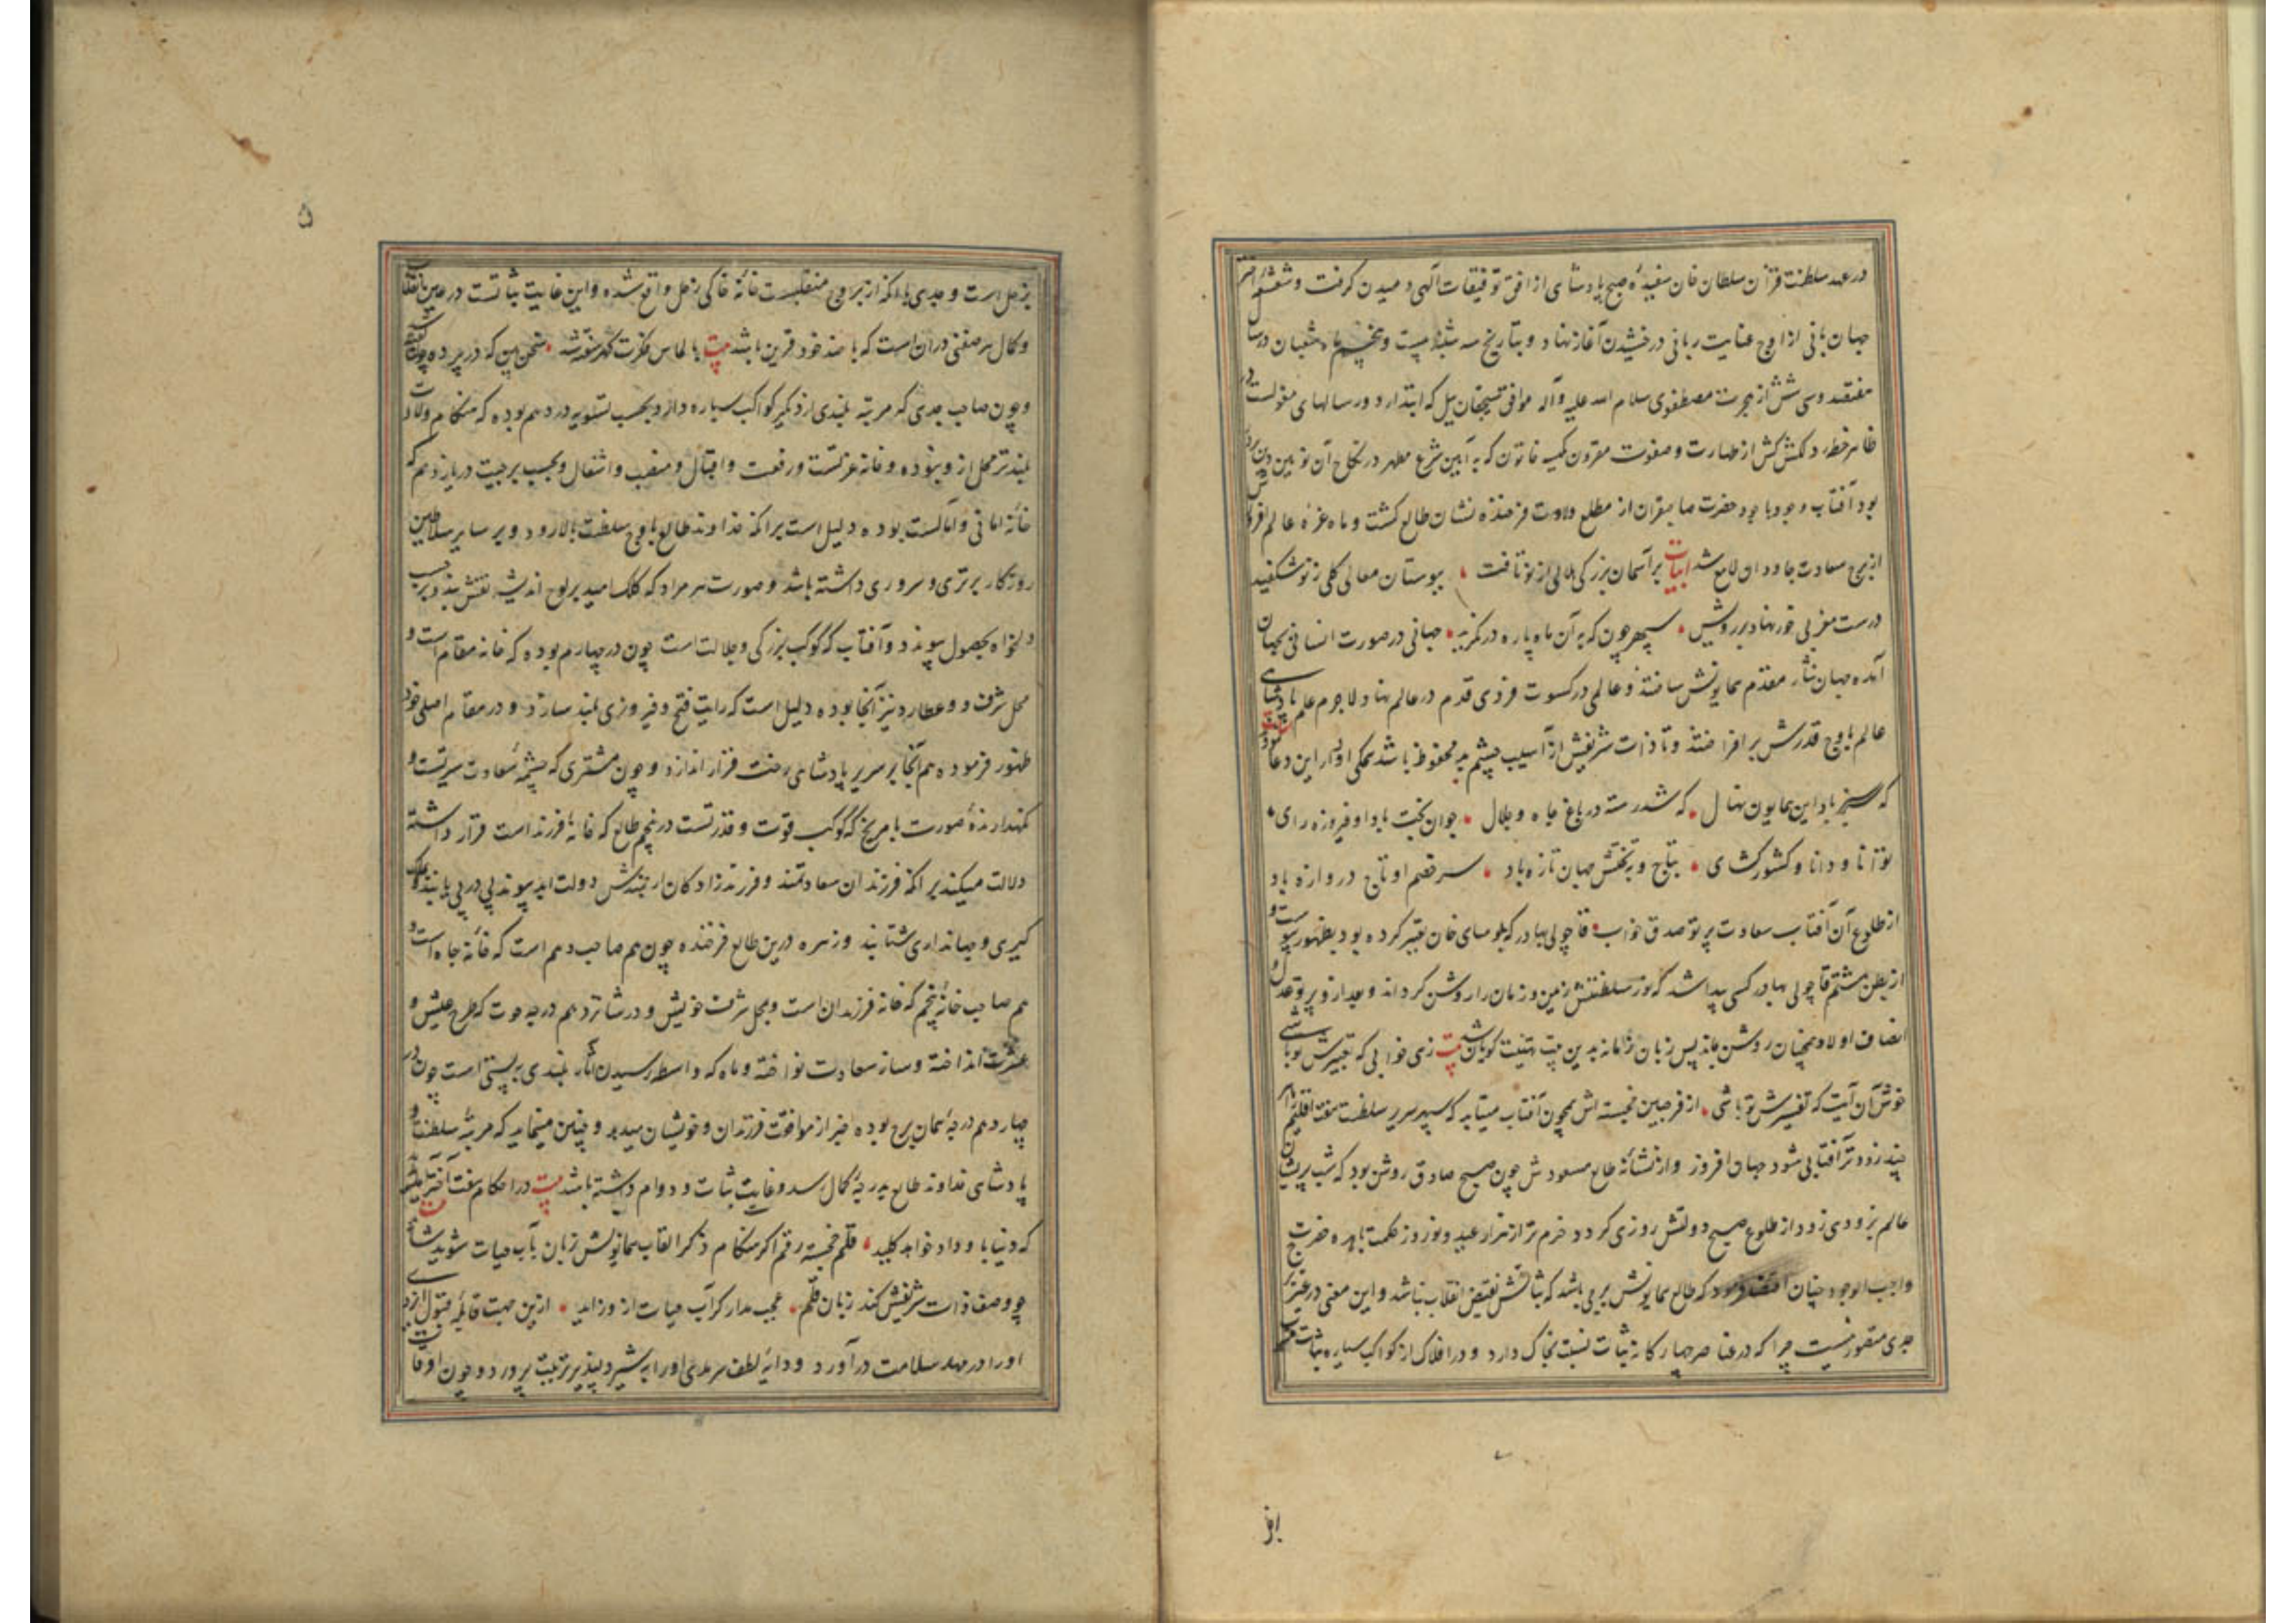 در عهد سلطنت قزان سلطان خان سفیدهٔ صبح پادشاهی از افق توفیقات آلهی دمیدن کرفت و شعشعهٔ اختر
جهان بانی از اوج عنایت ربانی درخشیدن آغاز نهاد و بتاریخ سه شنبه بیست و پنجم ماه شعبان در سال
هفتصد وسی شش از هجرت مصطفوی سلام الله علیه وآله موافق سیچقان ییل که ابتدار دور سالهای مغولست در
ظاهر خطه دلکش کش از طهارت وصفوت مقرون تکینه خاتون که به آیین شرع مطهر در نکاح آن نویین دین پرور
بود آفتاب وجود با جود حضرت صاحبقران از مطلع ولادت فرخنده نشان طالع کشت و ماه غرهٔ عالم افروزش
از برج سعادت جاودان لامع شد ابیات بر آسمان بزرکی هلالی از نو تافت ببوستان معالی کلی ز نو شکفید
درست مغربی خور نهاد بر رویش سپهر چون که به آن ماه پاره در نکرید جهانی در صورت انسانی بجهان
آمده جهان نثار مقدم همایونش ساختند و عالمی در کسوت فردی قدم در عالم نهاد لاجرم علم پادشاهی
عالم باوج قدرش بر افراختند و تا ذات شریفش از آسیب چشم بد محفوظ باشد همکی اورار این دعا نمود
که سرسبز باد این همایون نهال که شد رسته در باغ جاه و جلال جوان بخت بادا و فیروزه رای
توانا و دانا و کشورکشای بتاج و بتختش جهان تازه باد سر خصم او تاج دروازه باد
از طلوع آن آفتاب سعادت پرتو صدق خواب قاچولی بهادر که تومنای خان تعبیر کرده بود بظهور پیوست و
از بطن هشتم قاچولی بهادر کسی پیدا شد که نور سلطنتش زمین و زمان را روشن کرداند و بعد از و پرتو عدل و
انصاف اولاد همچنان روشن ماند پس زبان زمانه بدین بیت تهنیت کویان شد بیت زهی خوابی که تعبیرش تو باشی
خوش آن آیت که تفسیرش تو باشی از فر جبین خجسته اش همچون آفتاب میتابد که سپهر سریر سلطنت هفت اقلیم را
چند زودتر آفتابی شود جهان افروز و از نشانهٔ طالع مسعودش چون صبح صادق روشن بود که شب پریشان
عالم بزودی زود از طلوع صبح دولتش روزی کردد خرم تر از هزار عید و نوروز حکمت باهره حضرت
واجب الوجود چنان اقتضا فرمود که طالع همایونش برجی باشد که ثباتش نقیض انقلاب نباشد و این معنی در غیر
جدی متصور نیست چرا که در عناصر چهار کانه ثبات نسبت بخاک دارد و در افلاک از کواکب سیاره ثبات
۵
بزحل است و جدی با آنکه از بروج منقلبست خانهٔ خاکی زحل واقع شده و این غایت ثباتست در عین انقلاب
وکمال هر صفتی در آن است که با ضد خود قرین باشد بیت با الماس فکرت کهر سفته شد سخن بین که در پرده چون کفته شد
و چون صاحب جدی که مرتبه بلندی از دیگر کواکب سیاره دارد و بحسب تسویه در دهم بوده که هنکام ولادت
بلندتر محل از و نبوده و خانه عزتست و رفعت و اقبال و منصب و اشغال و بحسب برجیت در یازدهم که
خانهٔ امانی و آمالست بوده دلیل است بر آنکه خداوند طالع باوج سلطنت بالا رود و بر سایر سلاطین
روزکار برتری و سروری داشته باشد و صورت هر مراد که کلک امید بر لوح اندیشه نقش بندد بر حسب
دلخواه بحصول پیوندد و آفتاب که کوکب بزرکی و جلالت است چون در چهارم بوده که خانه مقام است و
محل شرف و عطارد نیز آنجا بوده دلیل است که رایت فتح و فیروزی بلند سازد و در مقام اصلی خود
ظهور فرموده هم آنجا بر سریر پادشاهی رخت قرار اندازد و چون مشتری که چشمهٔ سعادت سیرتست و
نکهدارندهٔ صورت با مریخ که کوکب قوت و قدرتست در پنجم طالع که خانهٔ فرزند است قرار داشته
دلالت میکند بر آنکه فرزندان سعادتمند و فرزندزادکان ارجمندش دولت ابد پیوند پی در پی پایند و ملک
کیری و جهانداری شتابند و زهره درین طالع فرخنده چون هم صاحب دهم است که خانهٔ جاه است و
هم صاحب خانهٔ پنجم که خانه فرزندان است و بمحل شرف خویش و در شانزدهم درجه حوت که طرح عیش و
عشرت انداخته و ساز سعادت نواخته و ماه که واسطهٔ رسیدن آثار بلندی به پستی است چون در
چهاردهم درجهٔ همان برج بوده خبر از موافقت فرزندان و خویشان میدهد و چنین مینماید که مرتبهٔ سلطنت و
پادشاهی خداوند طالع بدرجهٔ کمال رسد و غایت ثبات و دوام داشته باشد بیت در احکام هفت اختر
که دنیا با و داد خواهد کلید قلم خجسته رقم اکر هنکام ذکر القاب همایونش زبان بآب حیات شوید شاید
چو وصف ذات شریفش کند زبان قلم عجب مدار کر آب حیات از و زاید ازین جهت قابلهٔ قبول ازدی
او را در مهد سلامت در آورد و دایهٔ لطف سرمدی او را به شیر دلپذیر تربیت پرورد و چون اوقات